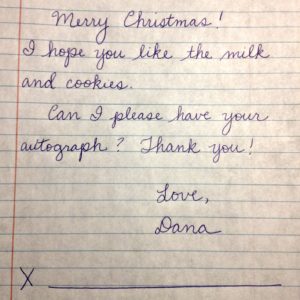 Merry Christmas!
I hope you like the milk
and cookies.
Can I please have your
autograph? Thank you!
Love,
Dana
X